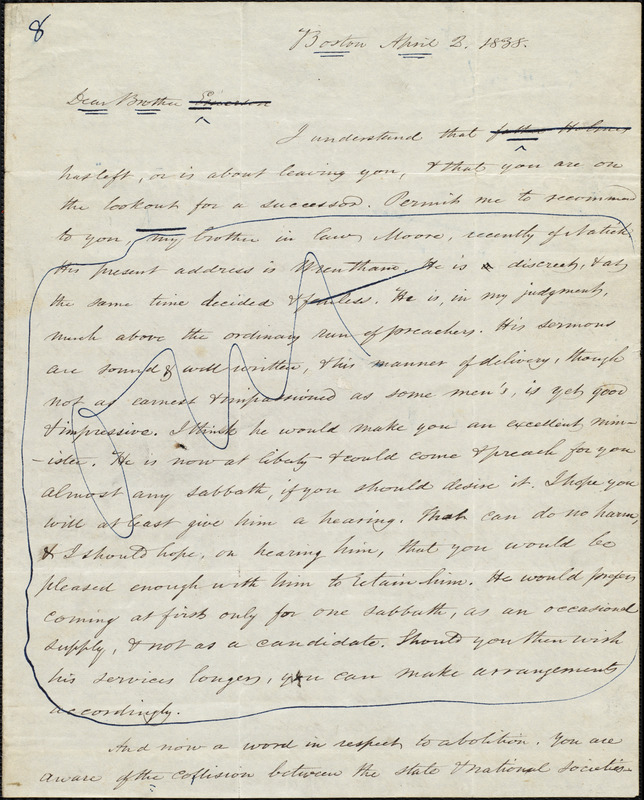 8
Boston April 2. 1838.
Dear Brother Emerson
I understand that father Holmes
has left, or is about leaving you, & that you are on
the lookout for a successor. Permit me to recommend
to you, my brother in law Moore, recently of Natick
His present address is Wrentham. He is discreet, & at
the same time decided & fearless. He is, in my judgment,
much above the ordinary run of preachers. His sermons
are sound & well written, & his manner of delivery, though
not as earnest & impassioned as some men's, is yet good
& impressive. I think he would make you an excellent min-
-ister. He is now at liberty & could come & preach for you
almost any sabbath, if you should desire it. I hope you
will at least give him a hearing. That can do no harm
& I should hope, on hearing him, that you would be
pleased enough with him to retain him. He would prefer
coming at first only for one sabbath, as an occasional
supply, & not as a candidate. Should you then wish
his services longer, you can make arrangements
accordingly.
And now a word in respect to abolition. You are
aware of the collision between the state & national societies